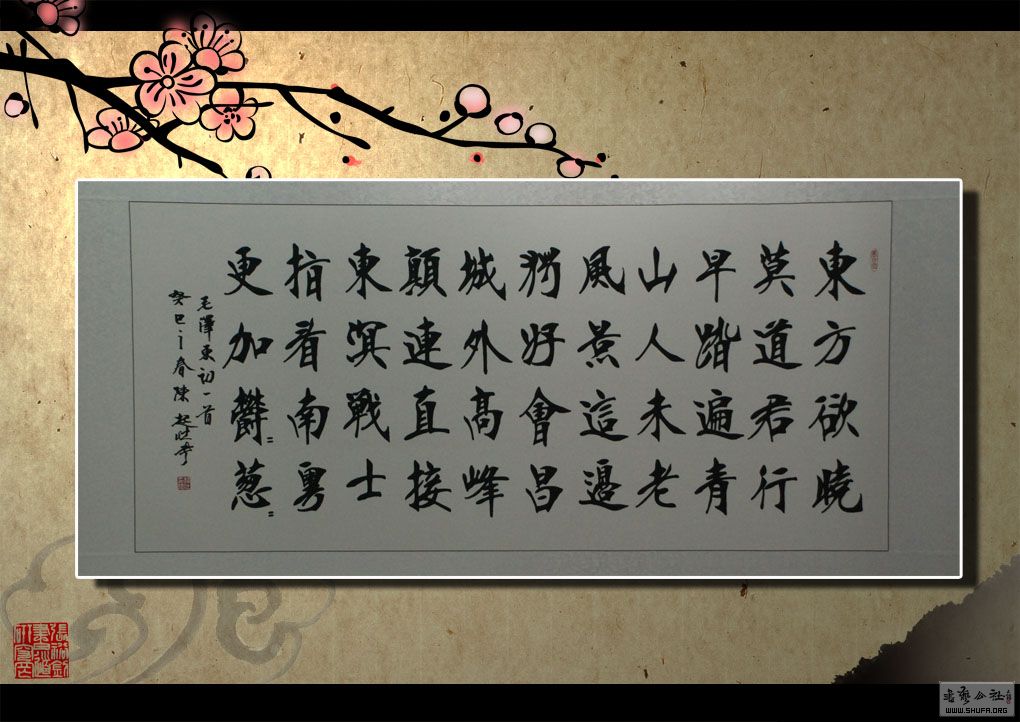 東方欲曉
莫道君行
早踏遍青
山人未老
風景這邊
獨好會昌
城外髙峰
顛連直接
東溟戰士
指看南粵
更加鬱〻葱〻
毛澤東詞一首
癸巳之春陳起
WWW.SHUFA.ORG